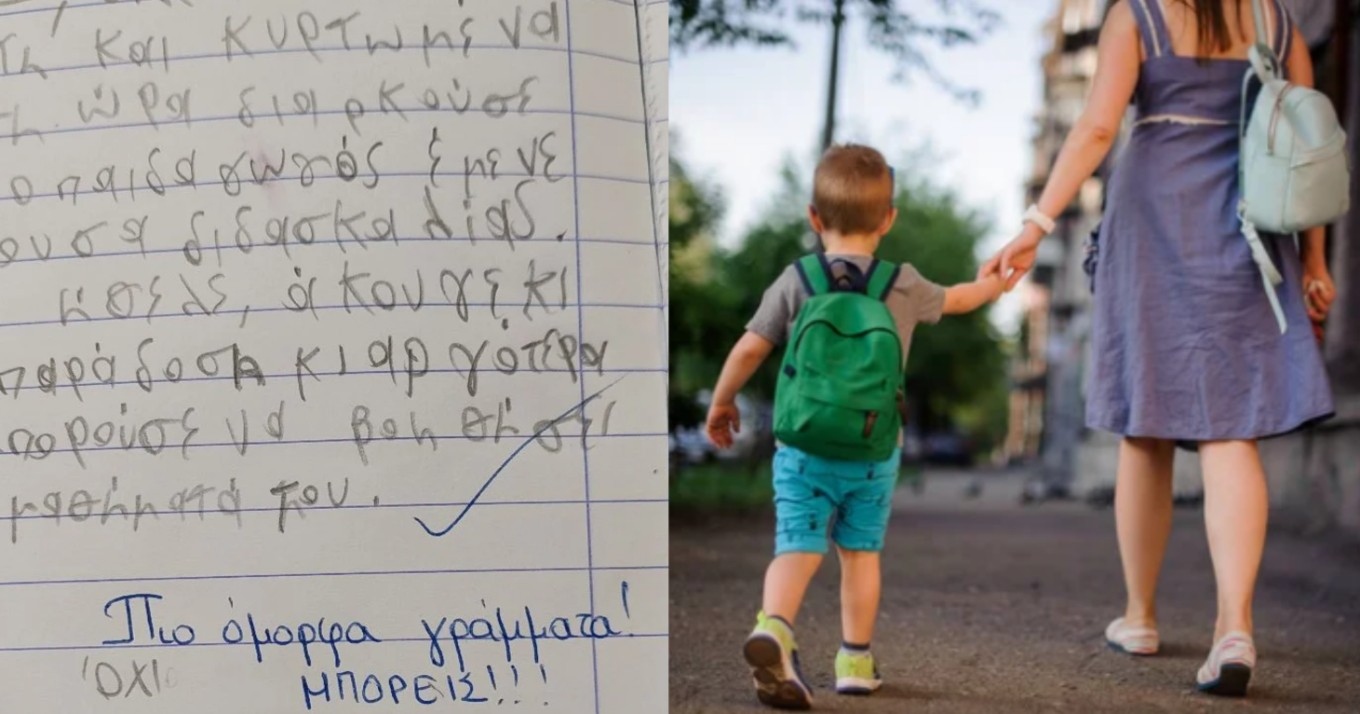 και κυρτωμένα
ώρα διαρκούσε
ο παιδαγωγός έμενε
ουσα διδασκαλίας.
ήθελε, άκουγε κι
παράδοση κι αργότερα
πορούσε να βοηθήσει
μαθήματά του.
Πιο όμορφα γράμματα!
ΌΧΙ ΜΠΟΡΕΙΣ!!!